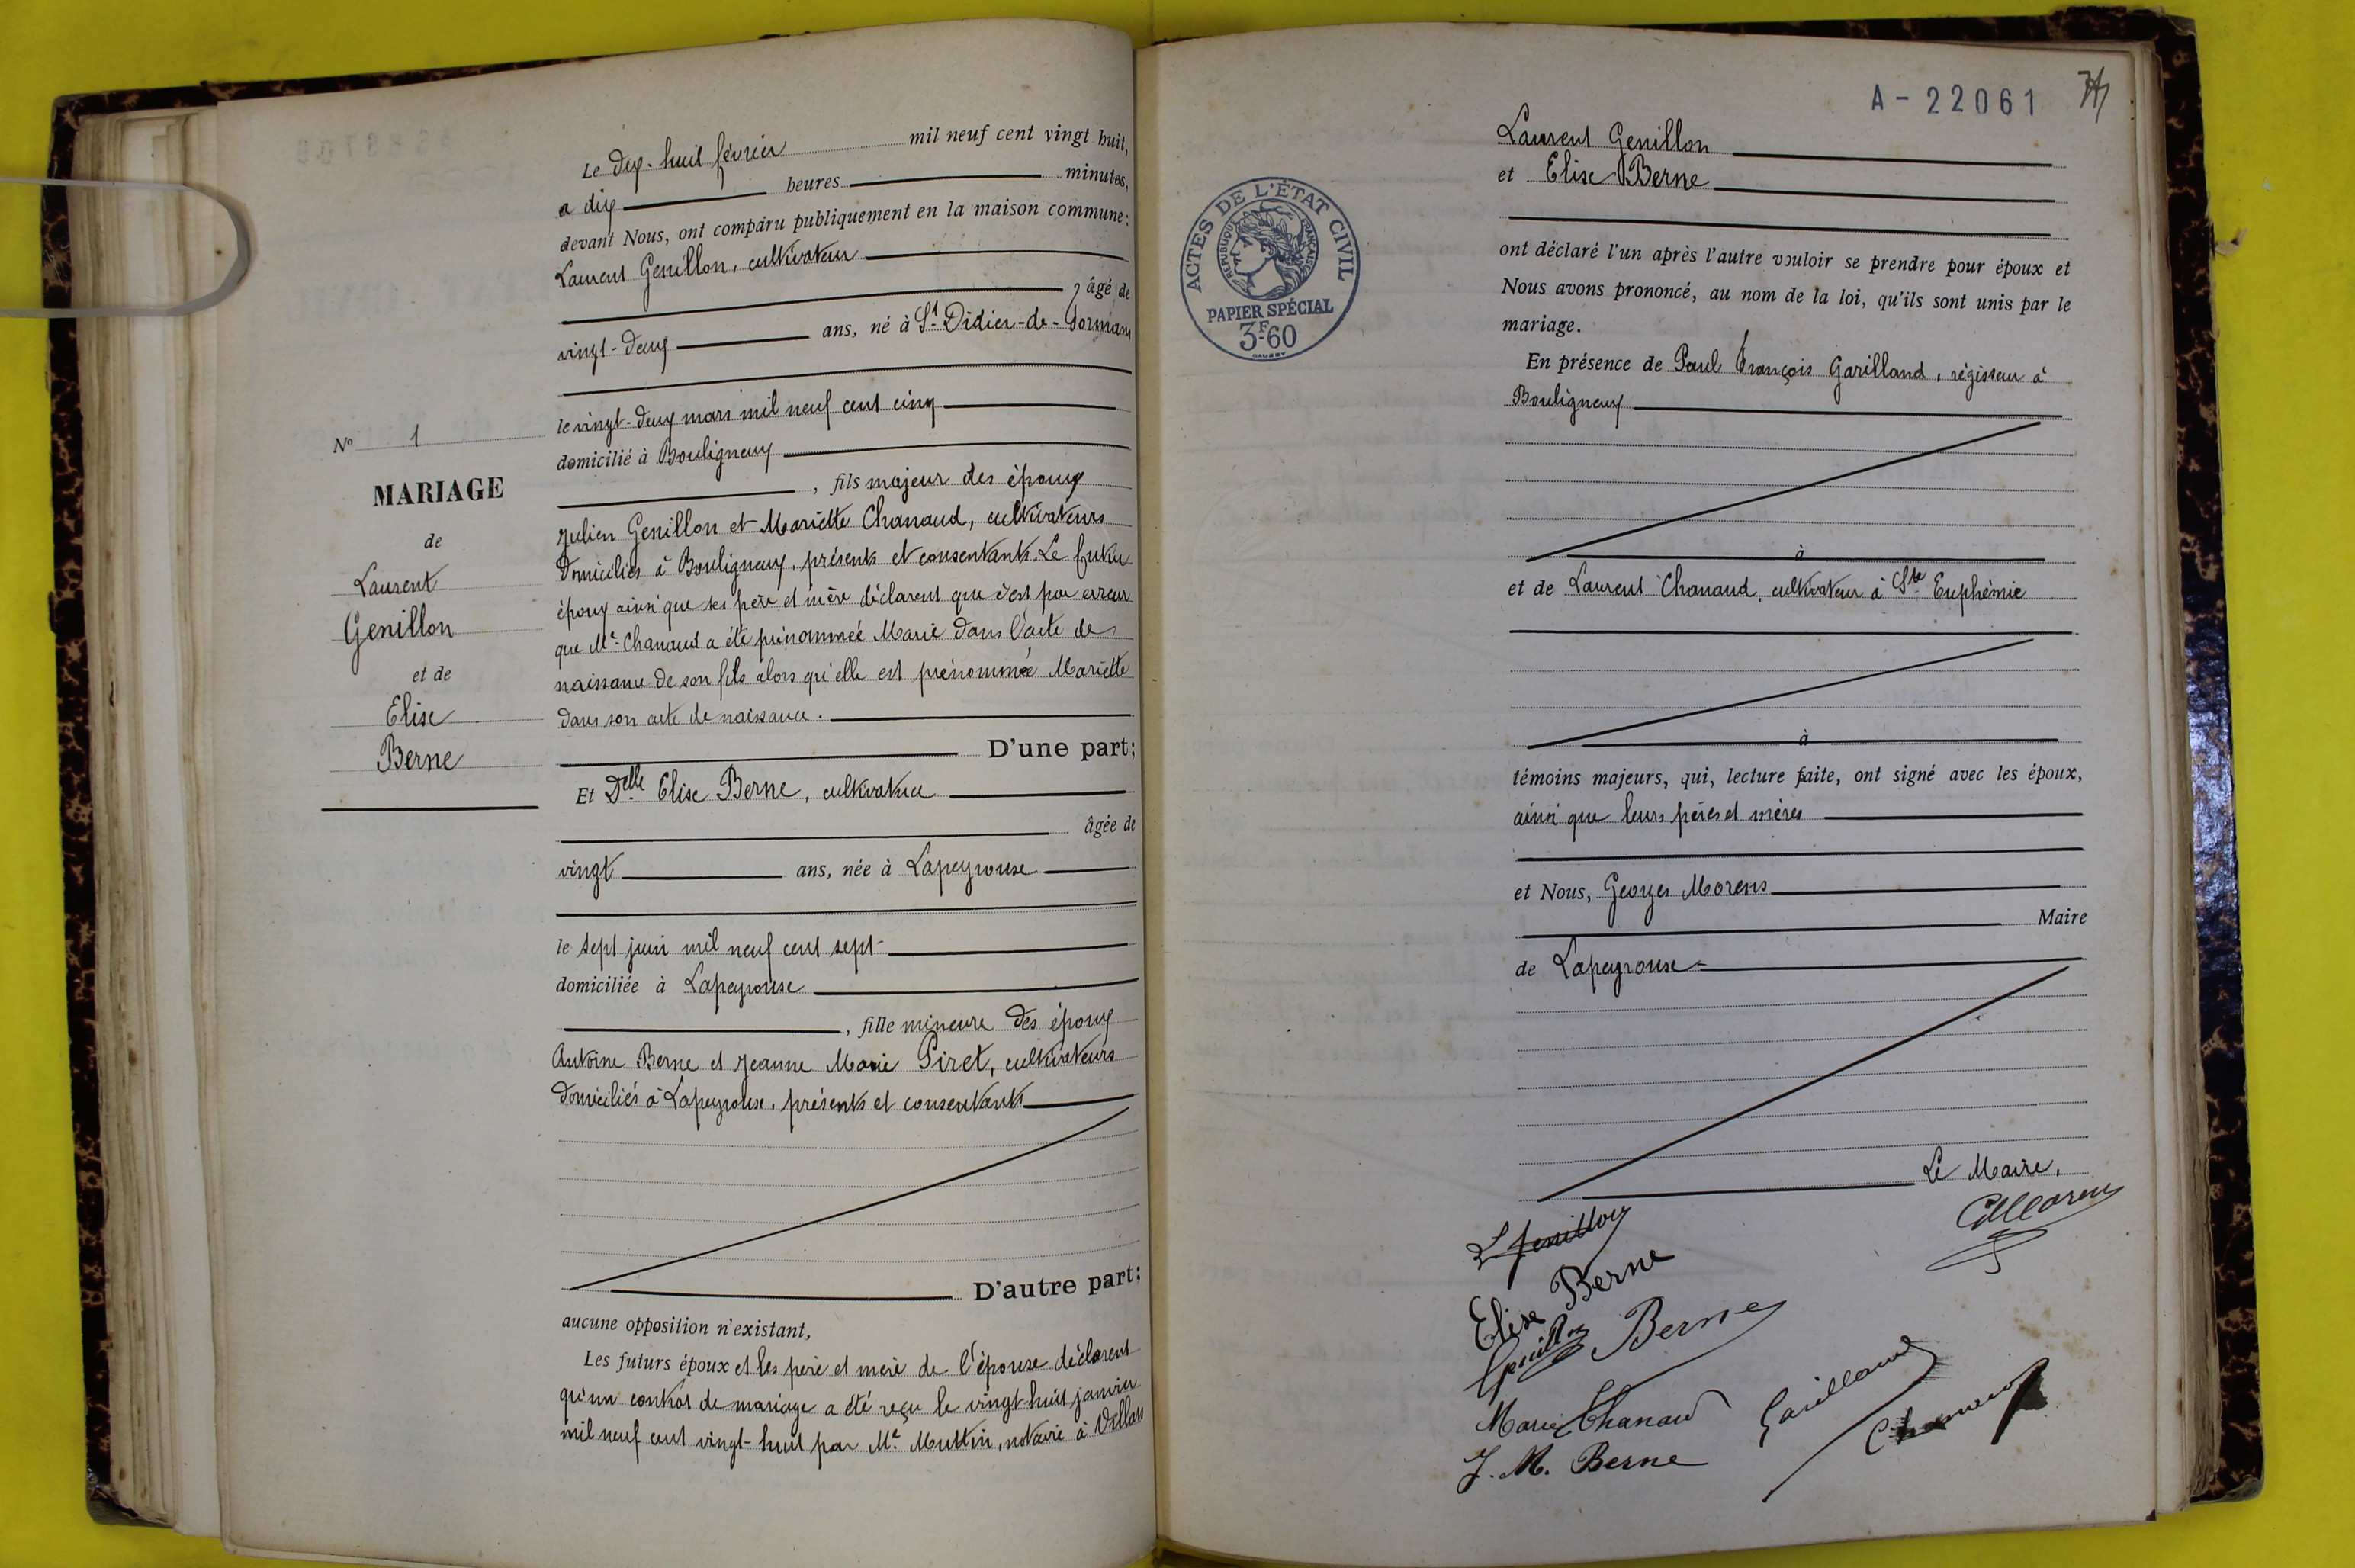 N° 1
MARIAGE
de
Laurent
Genillon
et de
Elise
Berne
Le dix-huit février mil neuf cent vingt huit,
a dix heures minutes,
devant Nous, ont comparu publiquement en la maison commune:
Laurent Genillon, cultivateur
, âgé de
vingt-deux ans, né à St Didier-de-Formans
le vingt-deux mars mil neuf cent cinq
domicilié à Bouligneux
, fils majeur des époux
Julien Genillon et Mariette Chanaud, cultivateurs
domiciliés à Bouligneux, présents et consentants. Le futur
époux ainsi que ses père et mère déclarent que c'est par erreur
que Me Chanaud a été prénommée Marie dans l'acte de
naissance de son fils alors qu'elle est prénommée Mariette
dans son acte de naissance.
D'une part;
Et Delle Elise Berne, cultivatrice
âgée de
vingt ans, née à Lapeyrouse
le sept juin mil neuf cent sept
domiciliée à Lapeyrouse
, fille mineure des époux
Antoine Berne et Jeanne Marie Piret, cultivateurs
domiciliés à Lapeyrouse, présents et consentants
D'autre part;
aucune opposition n'existant,
Les futurs époux et les père et mère de l'épouse déclarent
qu'un contrat de mariage a été reçu le vingt-huit janvier
mil neuf cent vingt-huit par Me Muttin, notaire à Villars
A-22061
Laurent Genillon
et Elise Berne
ont déclaré l'un après l'autre vouloir se prendre pour époux et
Nous avons prononcé, au nom de la loi, qu'ils sont unis par le
mariage.
En présence de Paul François Garilland, régisseur à
Bouligneux
à
et de Laurent Chanaud, cultivateur à Ste Euphémie
à
témoins majeurs, qui, lecture faite, ont signé avec les époux,
ainsi que leurs pères et mères
et Nous, Georges Morens
Maire
de Lapeyrouse
Le Maire,
ACTES DE L'ÉTAT CIVIL
RÉPUBLIQUE FRANÇAISE
PAPIER SPÉCIAL
3F60
L Genillon
GMorens
Elise Berne
Genillon Berne
Marie Chanaud Garilland Chanaud
J. M. Berne